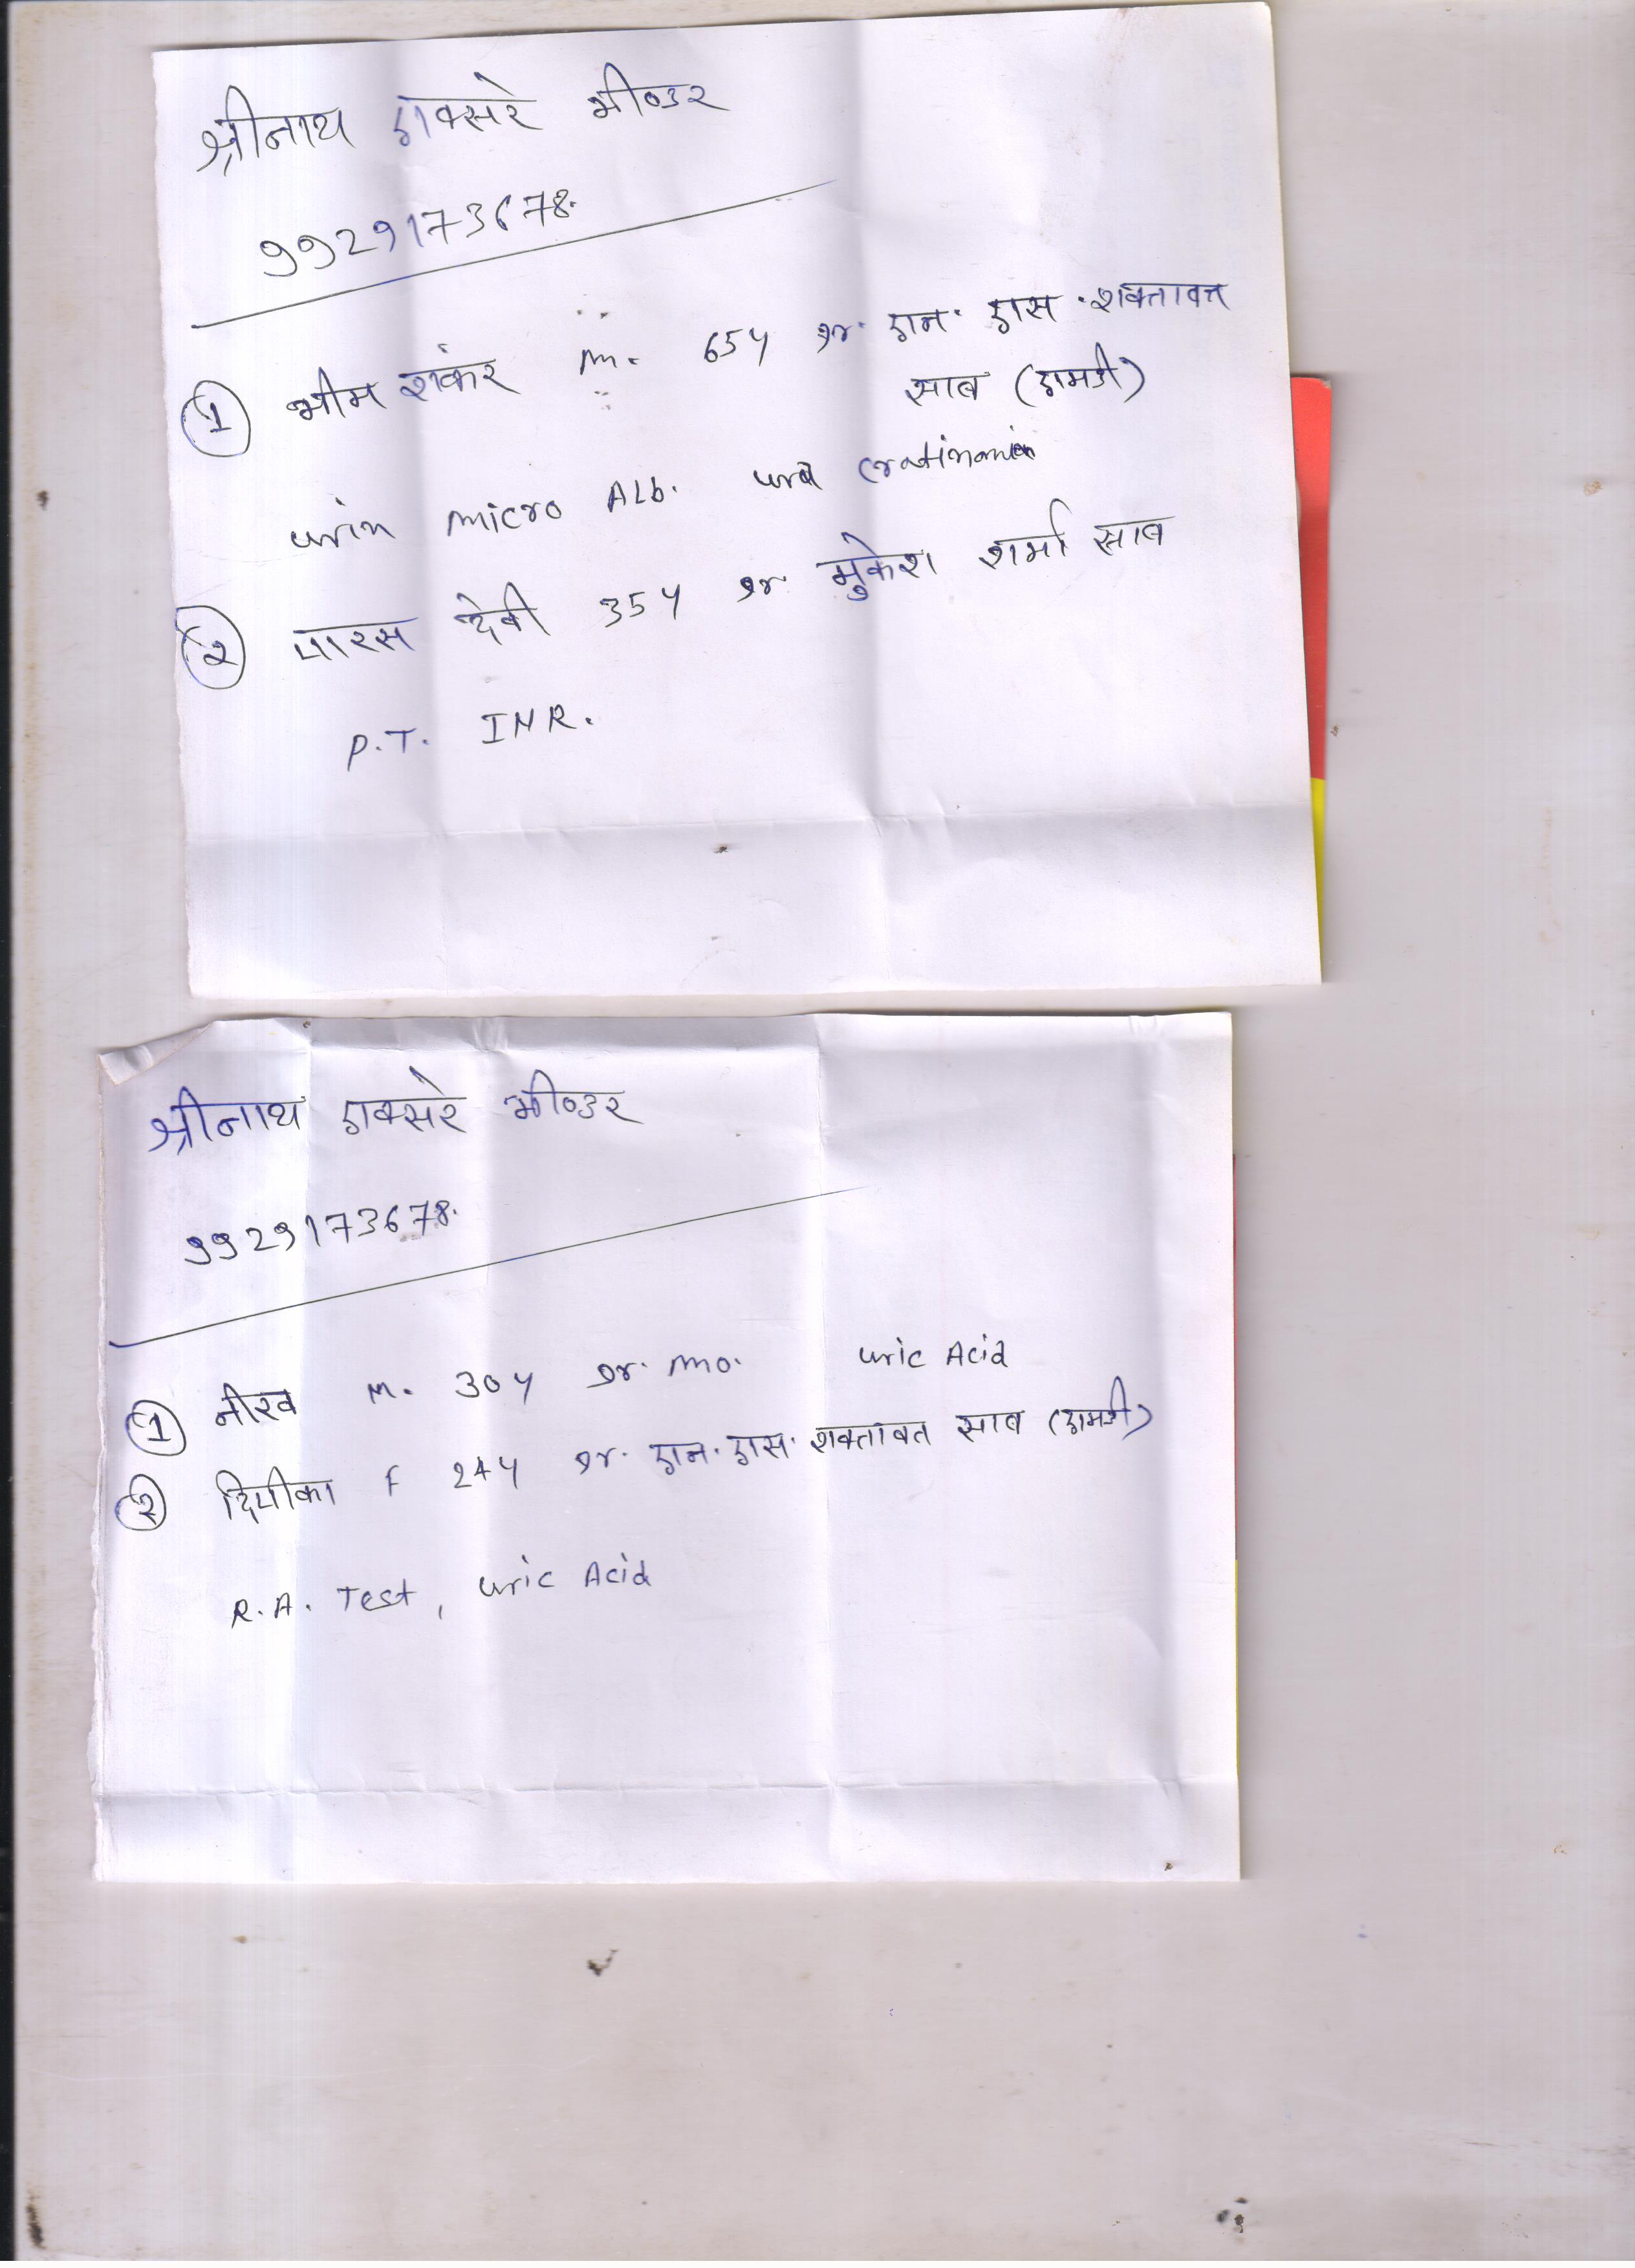 श्रीनाथ एक्सरे भीण्डर
9929173678.
① भीम शंकर M. 65y Dr. एन. एस. शक्तावत
साब (एमडी)
urin micro ALb.
② पारस देवी 35y Dr मुकेश शर्मा साब
P.T. INR.
श्रीनाथ एक्सरे भीण्डर
9929173678.
① नीरव M. 30y Dr. Mo. uric Acid
② दिपीका F 24y Dr. एन. एस. शक्तावत साब (एमडी)
R.A. Test, uric Acid